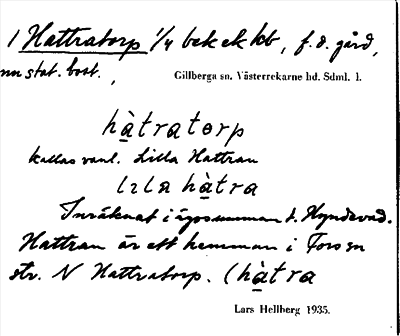 1 Hattratorp 1/4 bek ek kb, f.d. gård,
nu stat. bost.,
Gillberga sn. Västerrekarne hd. Sdml. l.
hàtratorp
kallas vanl. Lilla Hattran
lɩla hàtra
Inräknat i ägosumman t. Hyndevad.
Hattran är ett hemman i Fors sn
str. N Hattratorp. (hàtra
Lars Hellberg 1935.